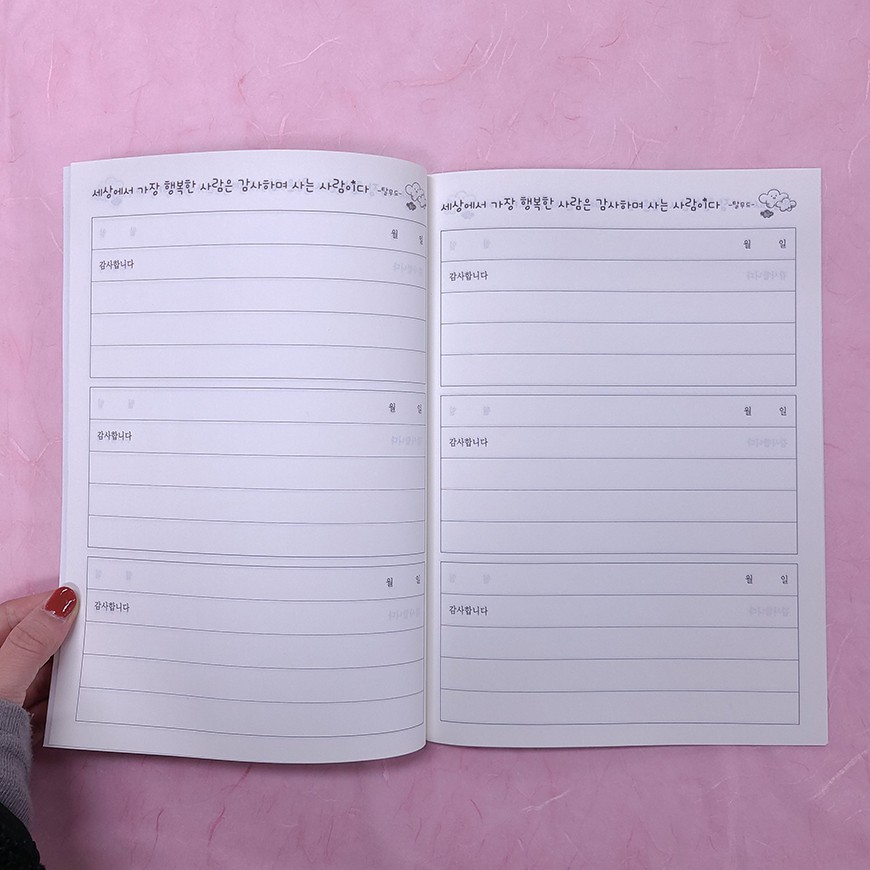 세상에서 가장 행복한 사람은 감사하며 사는 사람이다 -탈무드-
월 일
감사합니다
월 일
감사합니다
월 일
감사합니다
세상에서 가장 행복한 사람은 감사하며 사는 사람이다 -탈무드-
월 일
감사합니다
월 일
감사합니다
월 일
감사합니다